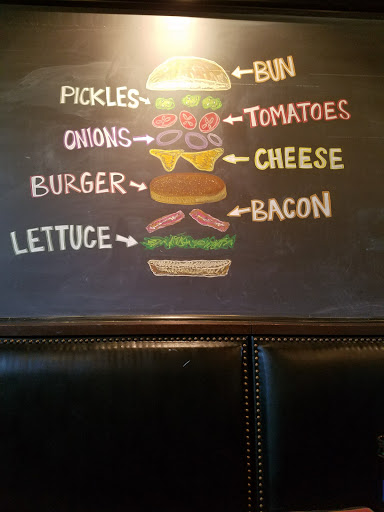 BUN
PICKLES
TOMATOES
ONIONS
CHEESE
BURGER
BACON
LETTUCE